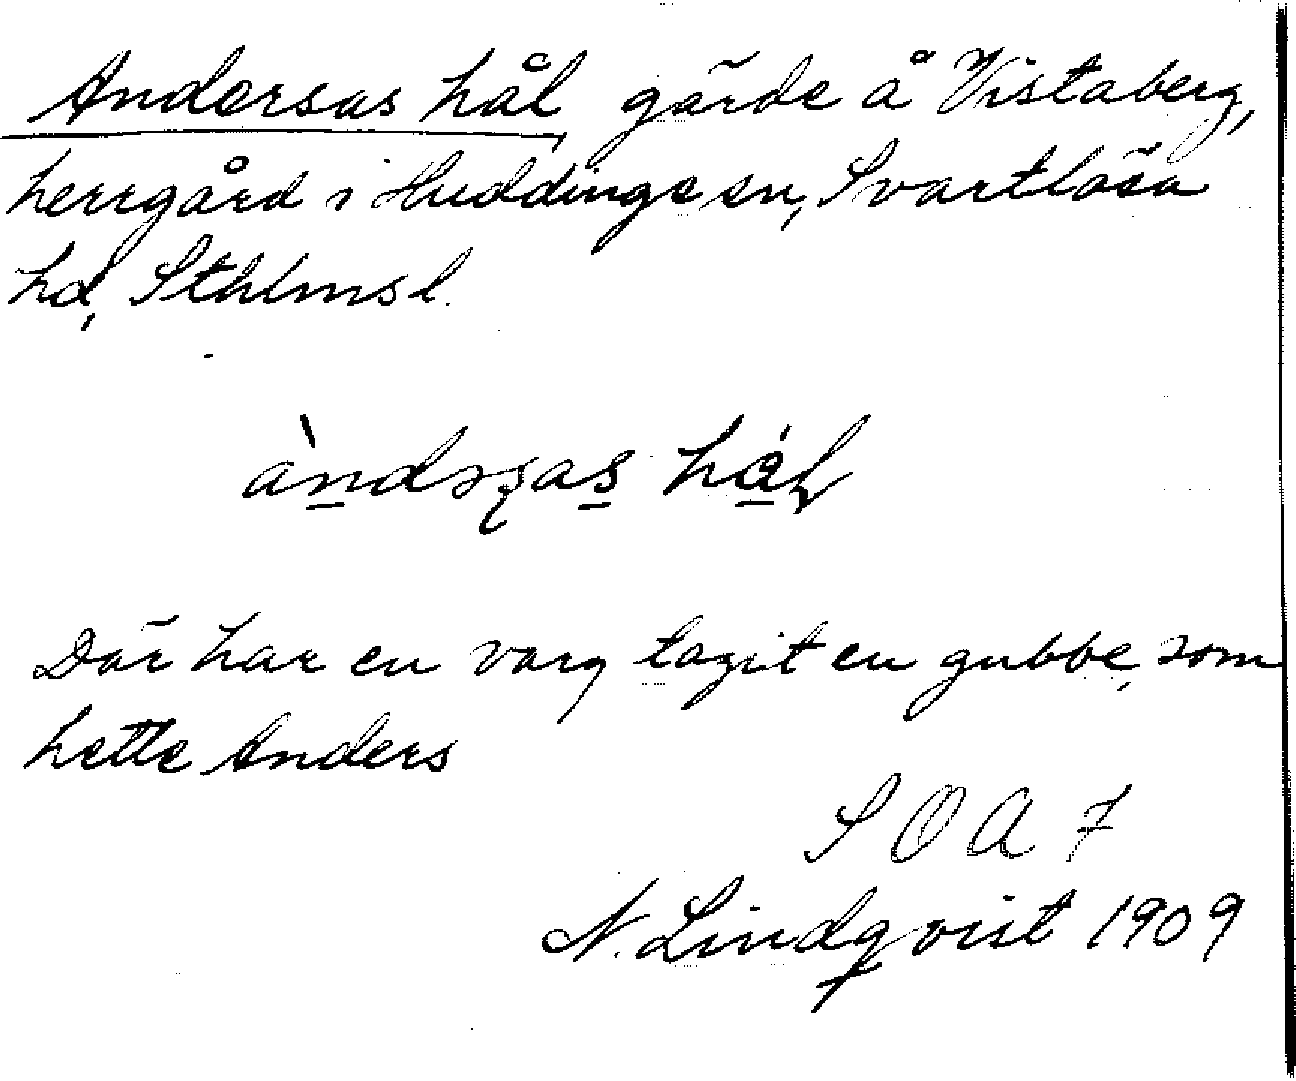 Andersas hål gärde å Vistaberg,
herrgård i Huddinge sn, Svartlösa
hd, Sthlms l.
àndɘʂas hál
Där har en varg tagit en gubbe, som
hette Anders
S O A 7
N. Lindqvist 1909